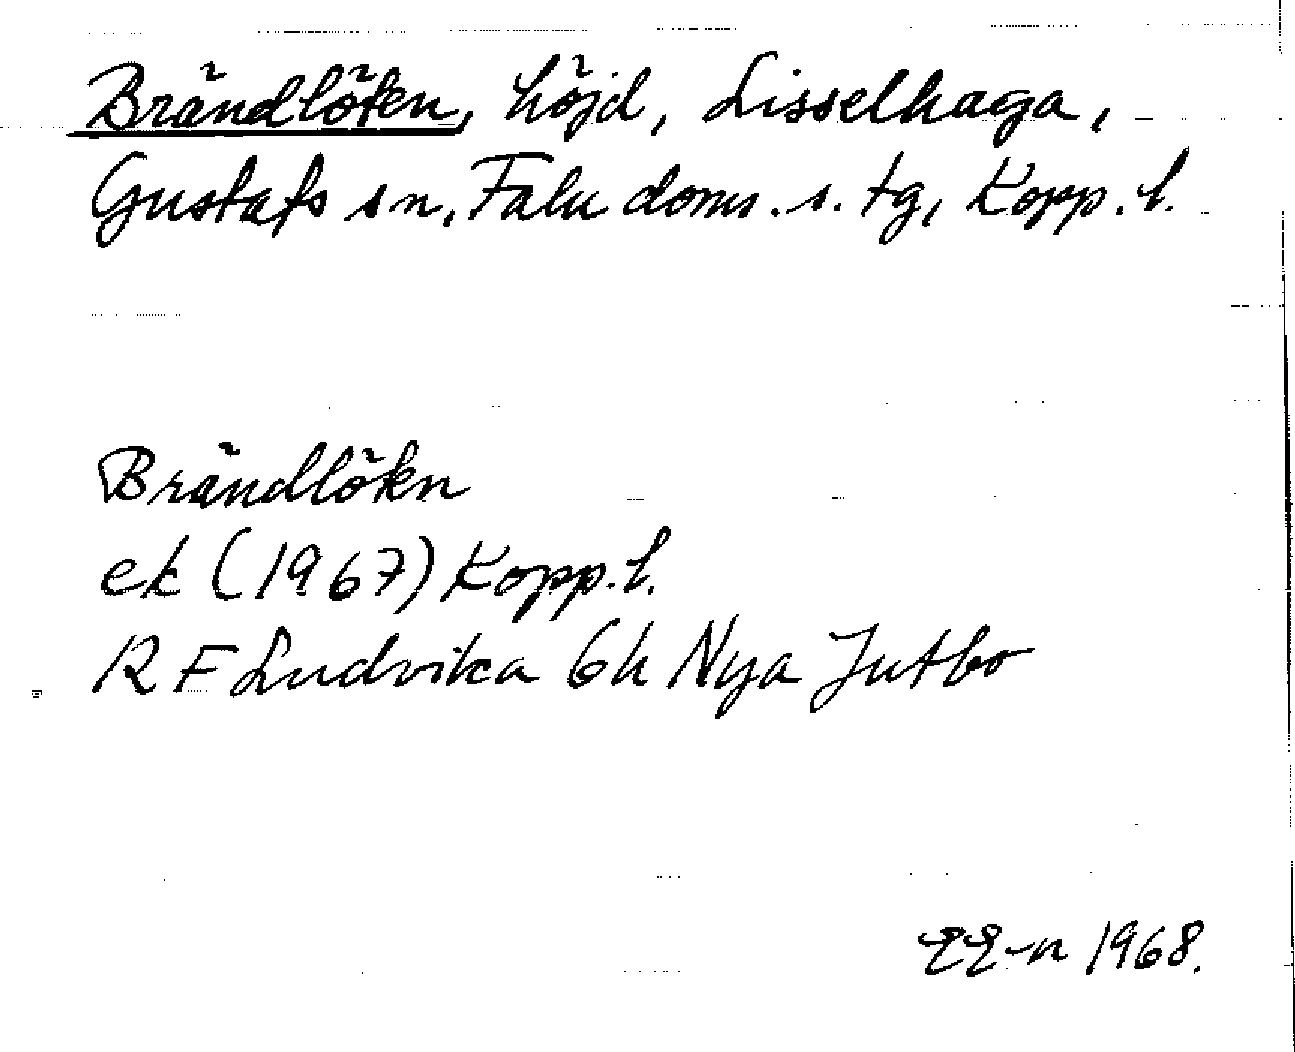 Brändlöken, höjd, Lisselhaga,
Gustafs sn, Falu doms. s. tg, Kopp. l.
Brändlökn
ek (1967) Kopp. l.
RF Ludvika 6h Nya Jutbo
EE-n 1968.